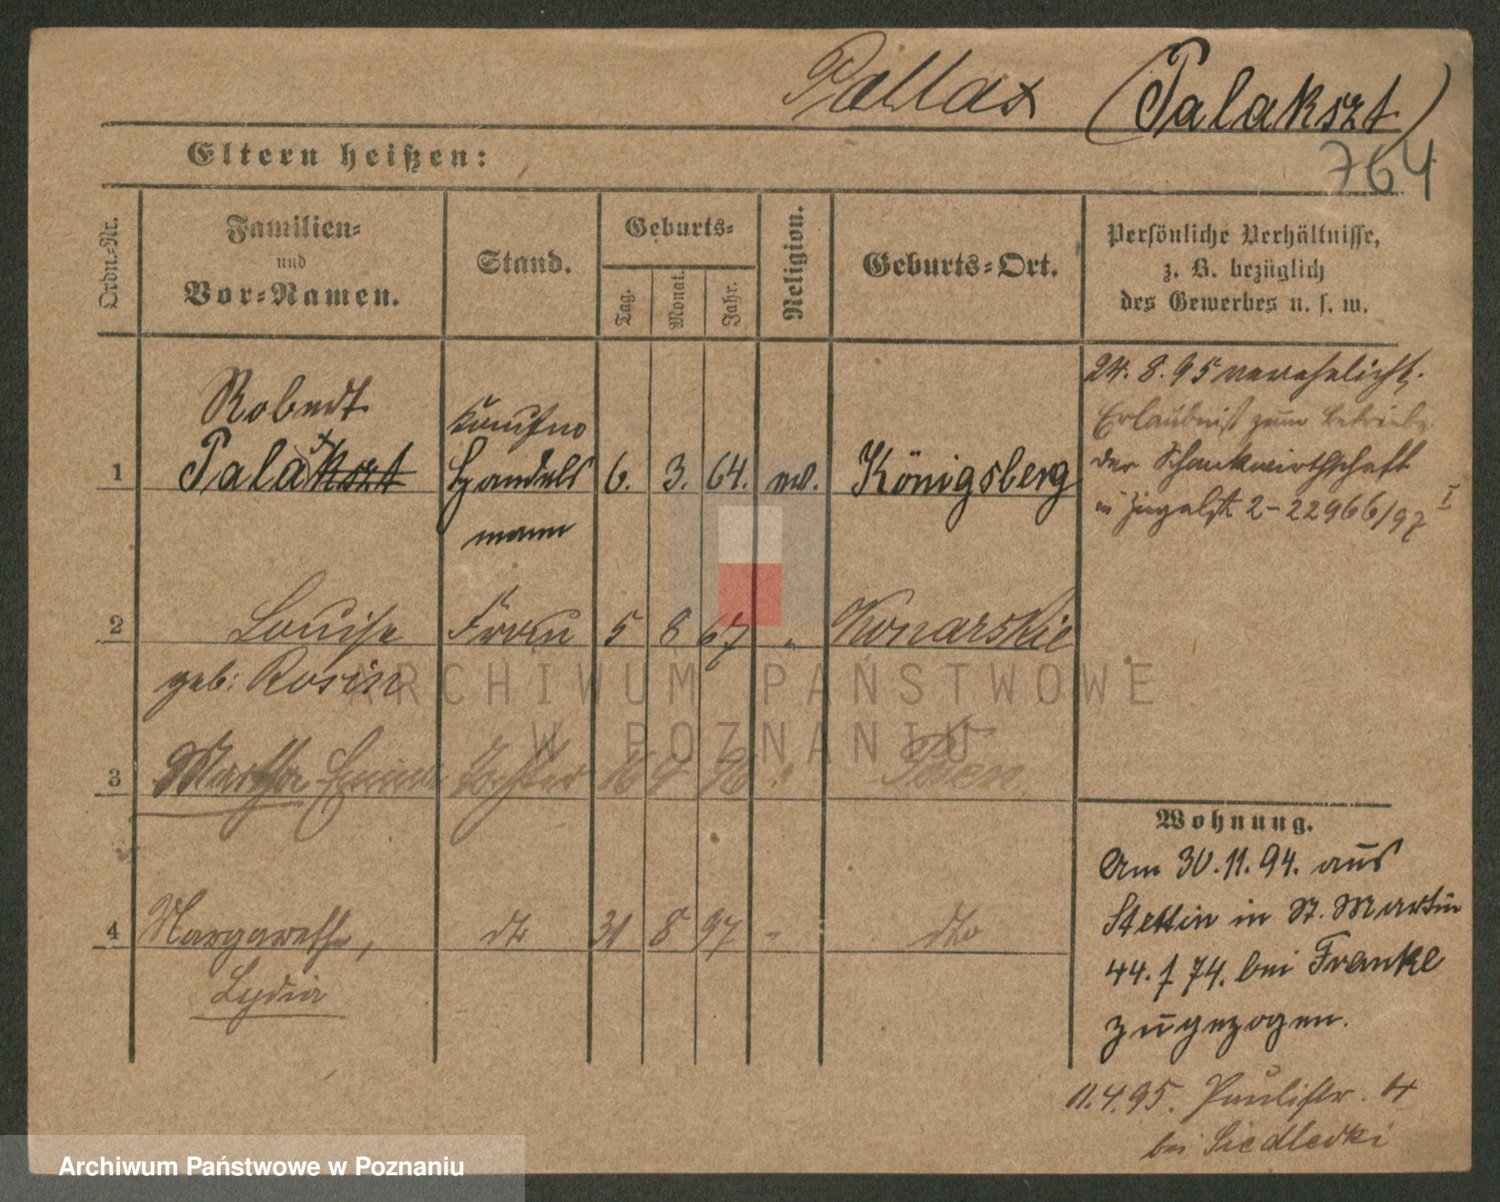 Pallax (Palakszt)
764
Eltern heißen:
Ordn.-Nr.
Familien- und Vor-Namen.
Stand.
Geburts-
Tag.
Monat.
Jahr.
Religion.
Geburts-Ort.
Persönliche Verhältnisse,
z. B. bezüglich
des Gewerbes u. s. w.
Robert
1 Palakszt Handels 6. 3. 64. ev. Königsberg
mann
24. 8. 95 verehelicht.
Erlaubniß zum Betriebe
der Schankwirthschaft
2-22966/97 I
2 Louise Frau 5 8 67 " Konarskie
geb: Rosin
3 Martha Tochter Posen
4 Margarethe, dto 31 8 97 - dto
Lydia
Wohnung.
Am 30.11.94. aus
Stettin in St. Martin
44. f 74. bei Franke
zugezogen.
11.4.95. Paulistr. 4
bei Siedlecki
ARCHIWUM PAŃSTWOWE
W POZNANIU
Archiwum Państwowe w Poznaniu